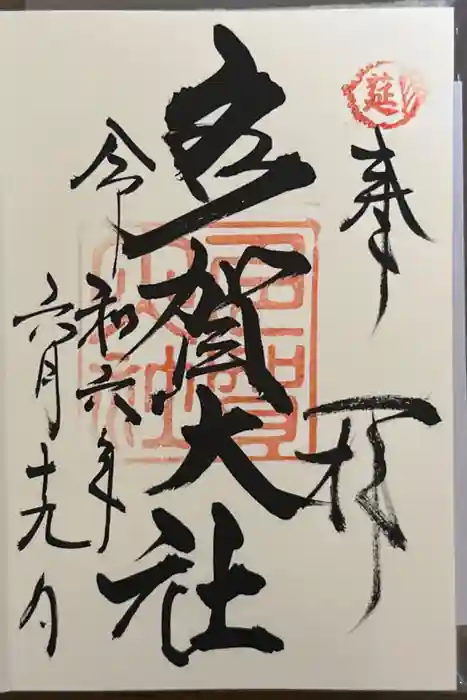 莚
奉拝
多賀大社
令和六年
六月十九日